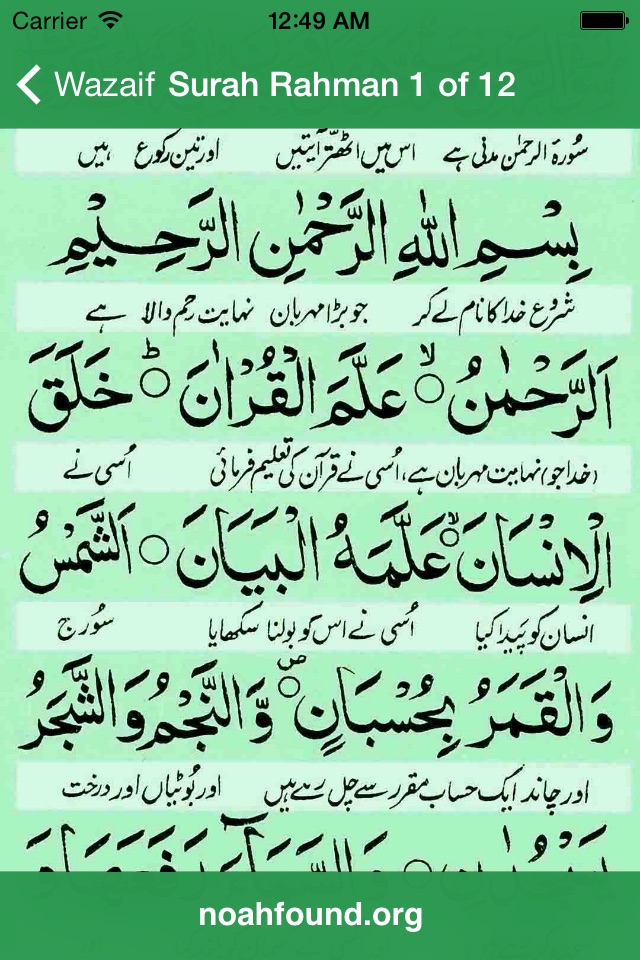 Carrier 12:49 AM
Wazaif Surah Rahman 1 of 12
سُورۃ الرحمٰن مدنی ہے اس میں اٹھتّر آیتیں اور تین رکوع ہیں
بِسْمِ اللّٰهِ الرَّحْمٰنِ الرَّحِيْمِ
شروع خدا کا نام لے کر جو بڑا مہربان نہایت رحم والا ہے
اَلرَّحْمٰنُ ۙ○ عَلَّمَ الْقُرْاٰنَ ○ؕ خَلَقَ
(خدا جو) نہایت مہربان ہے، اُسی نے قرآن کی تعلیم فرمائی اُسی نے
الْاِنْسَانَ ○ۙ عَلَّمَهُ الْبَيَانَ ○ اَلشَّمْسُ
انسان کو پَیدا کیا اُسی نے اس کو بولنا سکھایا سُورج
وَالْقَمَرُ بِحُسْبَانٍ ○ۖ وَّالنَّجْمُ وَالشَّجَرُ
اور چاند ایک حساب مقرر سے چل رہے ہیں اور بُوٹیاں اور درخت
noahfound.org